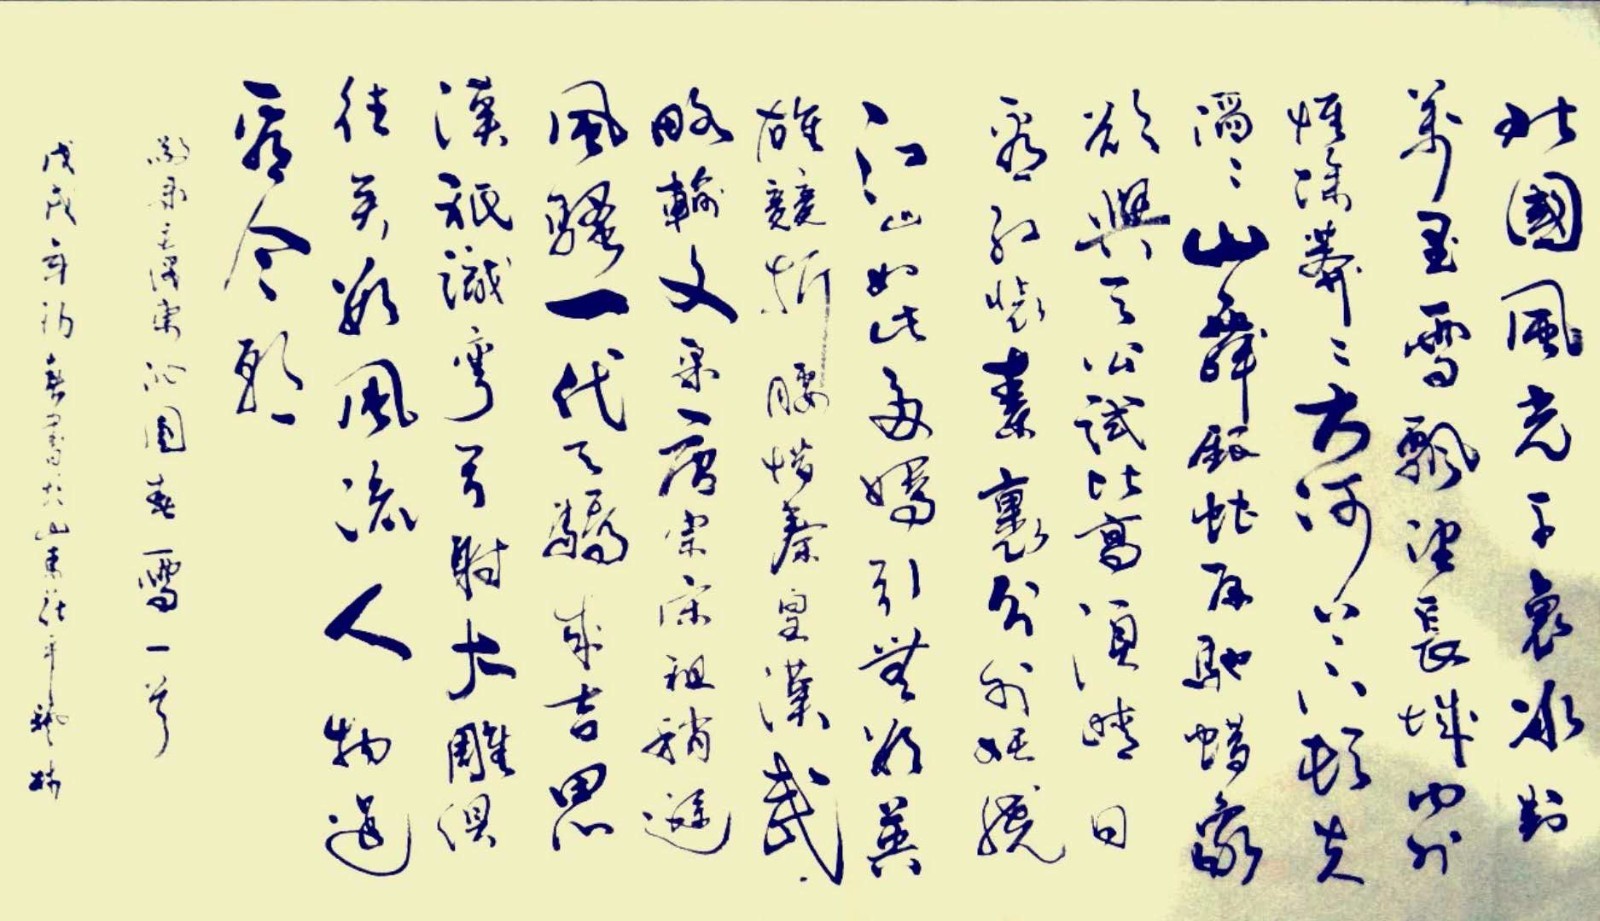 北國風光千裏冰封
萬里雪飄望長城內外
惟餘莽〻大河上下頓失
滔〻山舞銀蛇原馳蠟象
欲與天公試比高須晴日
看紅裝素裹分外妖嬈
江山如此多嬌引無數英
雄競折腰惜秦皇漢武
略輸文采唐宗宋祖稍遜
風騷一代天驕成吉思
漢祇識彎弓射大雕俱
往矣數風流人物還
看今朝
敬录毛澤東沁園春雪一首
戊戌年初春書於山東茌平